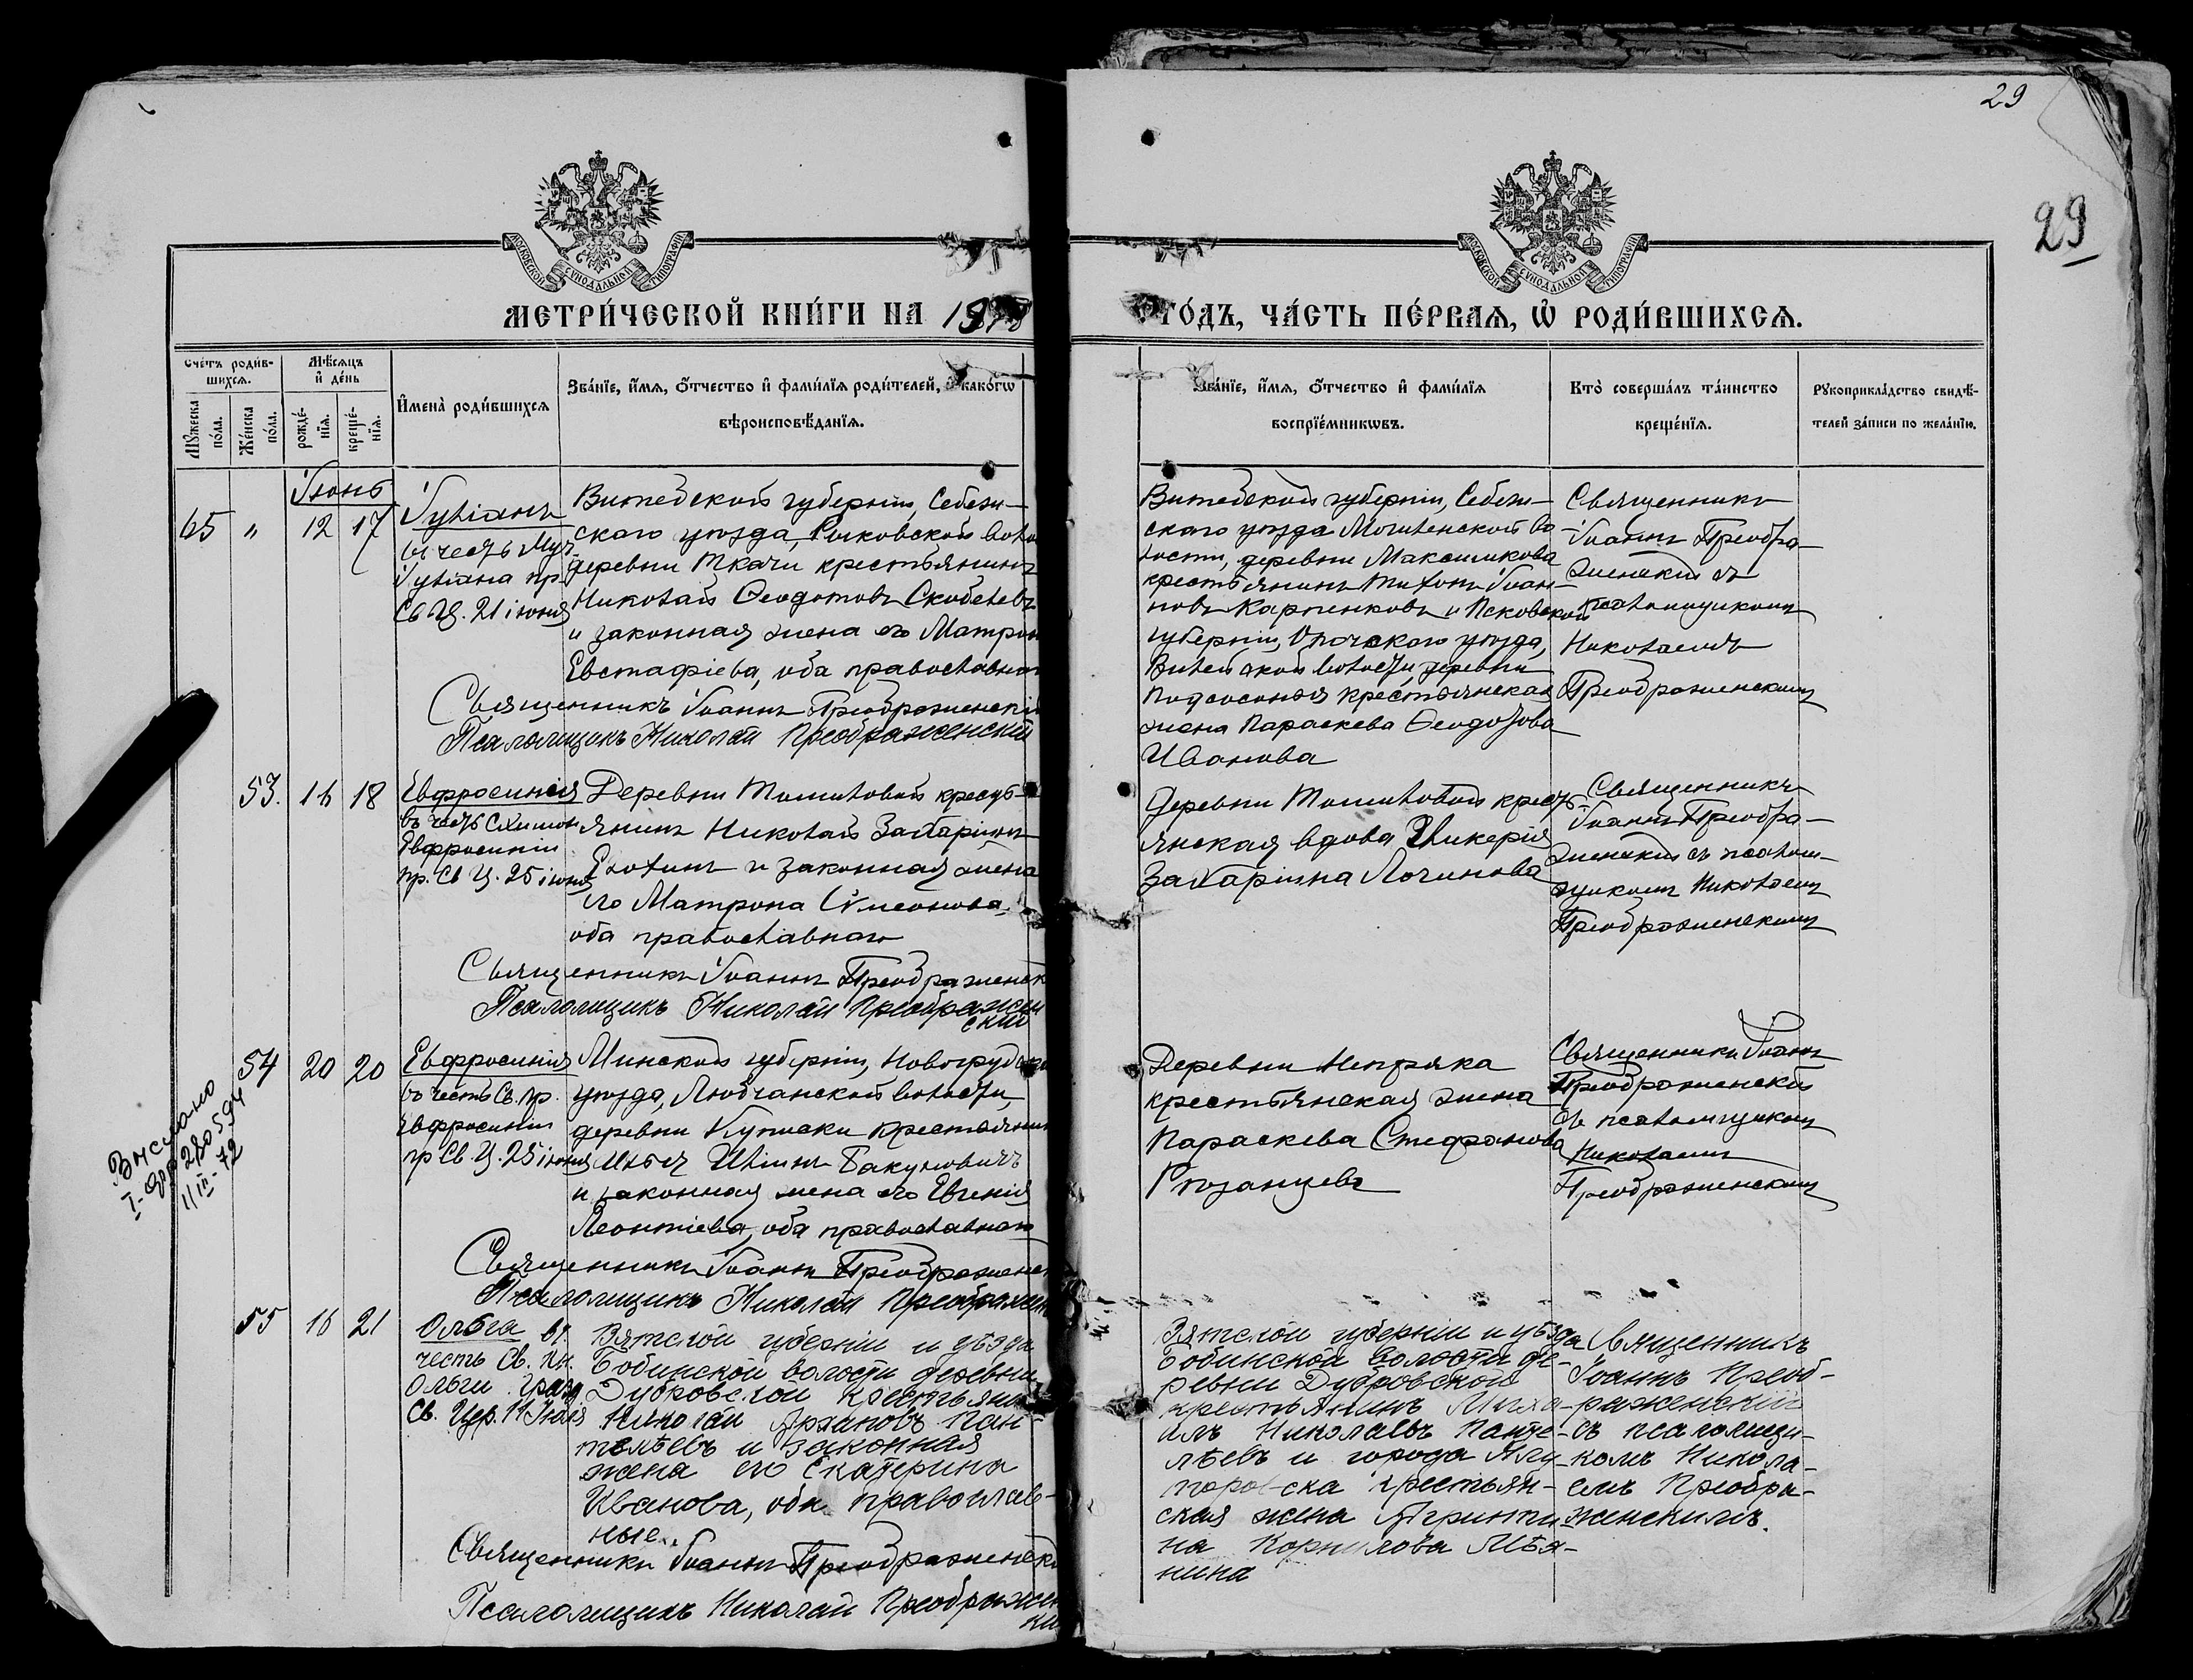 29
29
МОСКОВСКОЙ СѴНОДАЛЬНОЙ ТИПОГРАФІИ
МОСКОВСКОЙ СѴНОДАЛЬНОЙ ТИПОГРАФІИ
МЕТРИ́ЧЕСКОЙ КНИ́ГИ НА 19
ГО́ДЪ, ЧА́СТЬ ПЕ́РВАЯ, Ѡ҆ РОДИ́ВШИХСЯ.
Сче́тъ роди́в-
шихся.
Мѣ́сяцъ
и҆ де́нь
Мꙋ́жеска
по́ла.
Же́нска
по́ла.
рожде́-
нїя.
креще́-
нїя.
И҆мена̀ роди́вшихся
Зва́нїе, и҆́мя, ѻ҆́тчество и҆ фами́лїя роди́телей, и҆ како́гѡ
вѣроисповѣ́данїя.
Зва́нїе, и҆́мя, ѻ҆́тчество и҆ фами́лїя
воспрїе́мникѡвъ.
Кто̀ соверша́лъ та́инство
креще́нїя.
Рꙋкоприкла́дство свидѣ́-
телей за́писи по жела́нїю.
Іюнь
65 " 12 17
Іуліанъ
въ честь Муч.
Іуліана пр.
Св. Ц. 21 іюня
Витебской губерніи, Себеж-
скаго уѣзда, Рыковской воло
деревни Ткачи крестьянинъ
Николай Ѳеодотовъ Скобелевъ
и законная жена его Матрон
Евстафіева, оба православнаго
Священникъ Іоаннъ Преображенскій
Псаломщикъ Николай Преображенскій
Витебской губерніи, Себеж-
скаго уѣзда Могиленской во
лости, деревни Максимкова
крестьянинъ Тихонъ Іоан-
новъ Карпенковъ и Псковской
губерніи, Опочскаго уѣзда,
волости, деревни
Подсосонья крестьянская
жена Параскева Ѳеодотова
Иванова
Священникъ
Іоаннъ Преобра-
женскій съ
псаломщикомъ
Николаемъ
Преображенскимъ
53. 16 18
Евфросинія
въ честь Схимон
Евфросиніи
пр. Св. Ц. 25 іюня
Деревни Томиловой кресть-
янинъ Николай Захаріинъ
и законная жена
его Матрона Сѵмеонова,
оба православнаго
Священникъ Іоаннъ Преображенск
Псаломщикъ Николай Преображен
скій
Деревни Томиловой кресть-
янская вдова Гликерія
Захаріина Логинова
Священникъ
Іоаннъ Преобра-
женскій съ псалом-
щикомъ Николаемъ
Преображенскимъ
54 20 20
Выслано
11 III-72
Евфросинія
въ честь Св. пр.
Евфросиніи
пр Св. Ц. 25 іюня
Минской губерніи, Новогрудска
уѣзда, Любчанской волости,
деревни Куписки крестьянинъ
Илья Иліинъ Бакуновичъ
и законная жена его Евгенія
Леонтіева, оба православнаго
Священникъ Іоаннъ Преображенс
Псаломщикъ Николай Преображен
Деревни Непряка
крестьянская жена
Параскева Стефанова
Рязанцева
Священникъ Іоаннъ
Преображенскій
съ псаломщикомъ
Николаемъ
Преображенскимъ
55 16 21
Ольга въ
честь Св. Кн.
Ольги. празд
Св. Цер. 11 Іюля
Вятской губерніи и уѣзда
Бобинской волости деревни
Дубровской крестьянин
Николай Пан-
телѣевъ и законная
жена его Екатерина
Иванова, оба православ-
ные.
Священникъ Іоаннъ Преображенскі
Псаломщикъ Николай Преображен
кій
Вятской губерніи и уѣзда
Бобинской волости де-
ревни Дубровской
крестьянинъ Миха-
илъ Николаевъ Панте-
лѣевъ и города
крестьян-
ская жена Агриппи-
на Корнилова
нина
Священникъ
Іоаннъ Преоб-
раженскій
съ псаломщи-
комъ Никола-
емъ Преобра-
женскимъ.